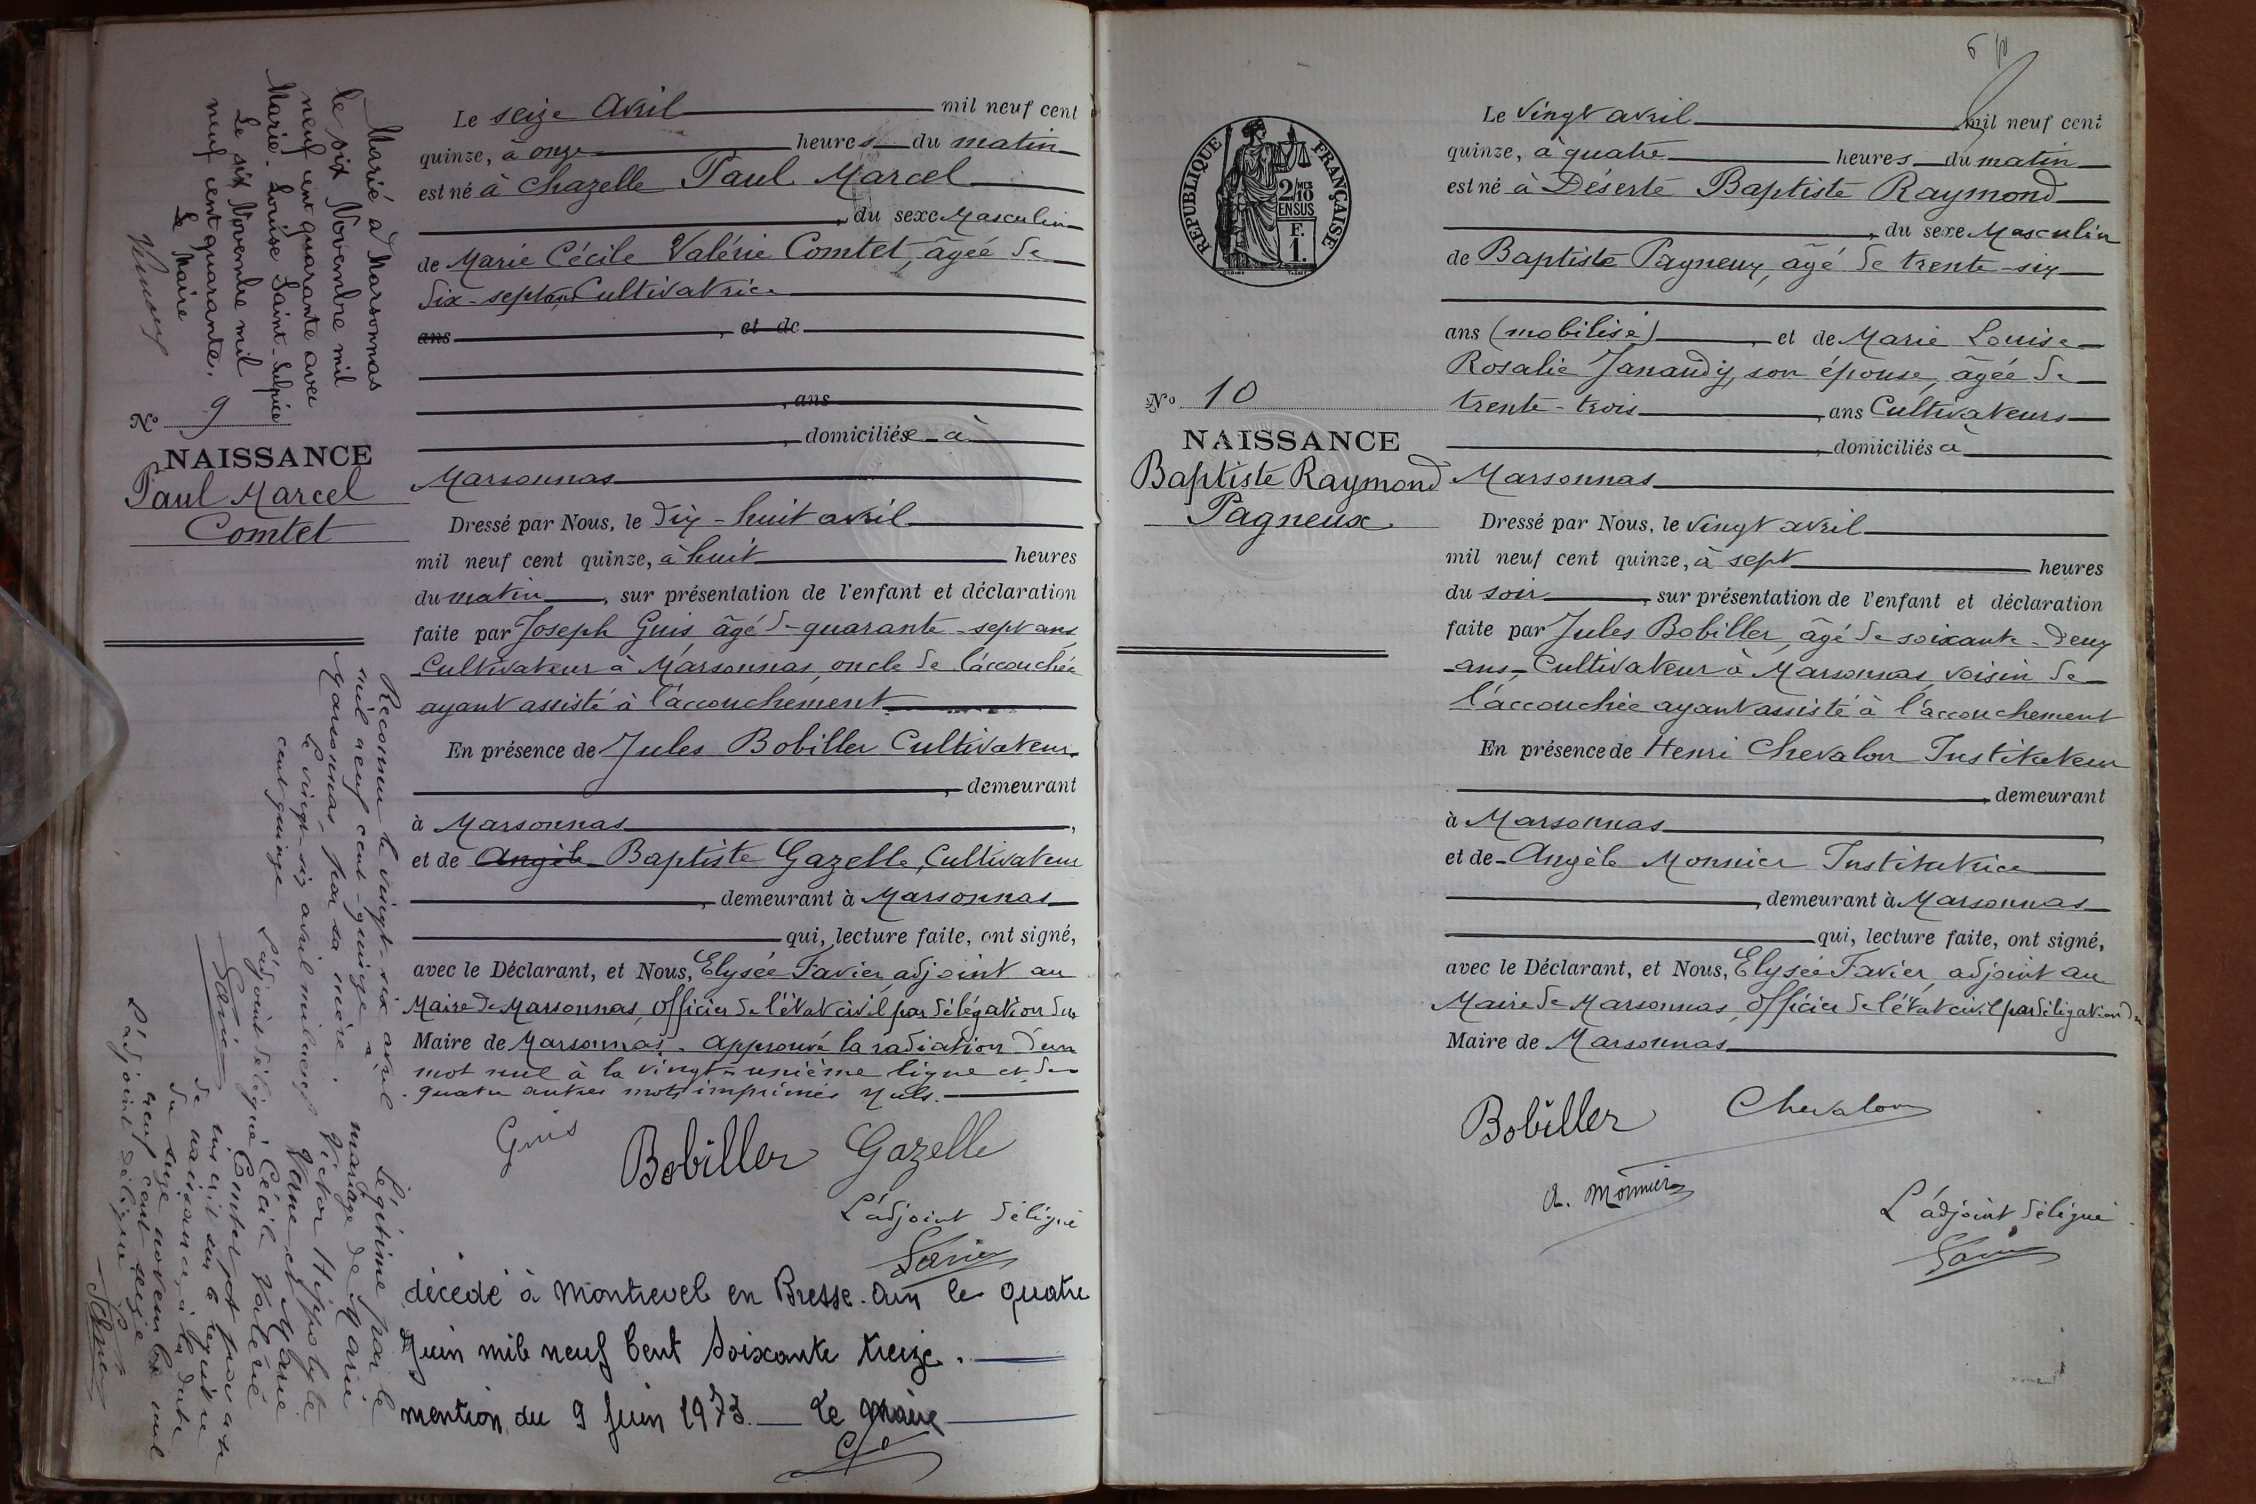 Marié à Marsonnas
le six Novembre mil
neuf cent quarante avec
Marie-Louise Saint-Sulpice
Le six Novembre mil
neuf cent quarante.
Le Maire
No 9
NAISSANCE
Paul Marcel
Comtet
Reconnu le vingt-six avril
mil neuf cent-quinze à
Marsonnas, par sa mère.
Le vingt-six avril mil neuf
cent quinze
L'adjoint délégué
Favier
Légitimé par le
mariage de Marie
Victor Hippolyte
et Marie
Cécile Valérie
Comtet
inscrit sur le registre
du seize novembre mil
neuf cent seize
L'adjoint délégué
Favier
Le seize Avril mil neuf cent
quinze, à onze heures du matin
est né à Chazelle Paul Marcel
, du sexe Masculin
de Marie Cécile Valérie Comtet, âgée de
dix-sept ans, Cultivatrice
ans , et de
, ans
, domiciliée à
Marsonnas
Dressé par Nous, le dix-huit avril
mil neuf cent quinze, à huit heures
du matin , sur présentation de l'enfant et déclaration
faite par Joseph Guis, âgé de quarante-sept ans
Cultivateur à Marsonnas, oncle de l'accouchée
ayant assisté à l'accouchement
En présence de Jules Bobiller Cultivateur
, demeurant
à Marsonnas ,
et de Angèle Baptiste Gazelle, Cultivateur
, demeurant à Marsonnas
qui, lecture faite, ont signé,
avec le Déclarant, et Nous, Elysée Favier, adjoint au
Maire de Marsonnas, Officier de l'état civil par délégation du
Maire de Marsonnas. Approuvé la radiation d'un
mot nul à la vingt-unième ligne et de
quatre autres mots imprimés nuls.
Guis Bobiller Gazelle
L'adjoint délégué
Favier
décédé à Montrevel en Bresse. Ain le quatre
Juin mil neuf Cent Soixante treize.
mention du 9 Juin 1973. Le Maire
6
RÉPUBLIQUE FRANÇAISE
2/10 MES
EN SUS
F.
1.
No 10
NAISSANCE
Baptiste Raymond
Pagneux
Le vingt avril mil neuf cent
quinze, à quatre heures du matin
est né à Déserte Baptiste Raymond
, du sexe Masculin
de Baptiste Pagneux, âgé de trente-six
ans (mobilisé) , et de Marie Louise
Rosalie Janaudy, son épouse, âgée de
trente-trois , ans Cultivateurs
, domiciliés à
Marsonnas
Dressé par Nous, le vingt avril
mil neuf cent quinze, à sept heures
du soir , sur présentation de l'enfant et déclaration
faite par Jules Bobiller, âgé de soixante-deux
ans, Cultivateur à Marsonnas, voisin de
l'accouchée ayant assisté à l'accouchement
En présence de Henri Chevalon Instituteur
, demeurant
à Marsonnas
et de Angèle Monnier Institutrice
, demeurant à Marsonnas
qui, lecture faite, ont signé,
avec le Déclarant, et Nous, Elysée Favier, adjoint au
Maire de Marsonnas, Officier de l'état civil par délégation du
Maire de Marsonnas
Bobiller Chevalon
A. Monnier
L'adjoint délégué
Favier